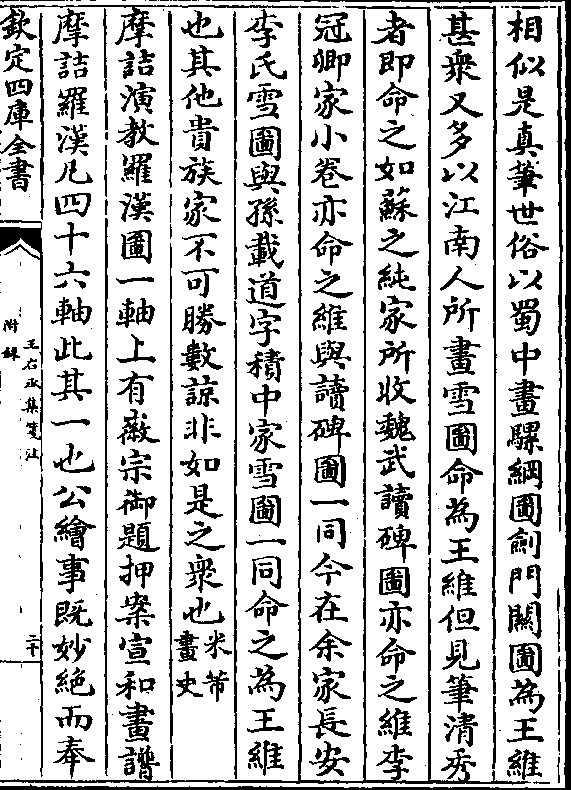 相似是真筆世俗以蜀中畫騾綱圖劍門關圖為王維
甚衆又多以江南人所畫雪圖命為王維但見筆清秀
者即命之如蘇之純家所收魏武讀碑圖亦命之維李
冠卿家小卷亦命之維與讀碑圖一同今在余家長安
李氏雪圖與孫載道字積中家雪圖一同命之為王維
也其他貴族家不可勝數諒非如是之衆也米芾畫史
摩詰演教羅漢圖一軸上有徽宗御題押案宣和畫譜
摩詰羅漢凡四十六軸此其一也公繪事既妙絶而奉
欽定四庫全書
王右丞集箋注
附錄
二十